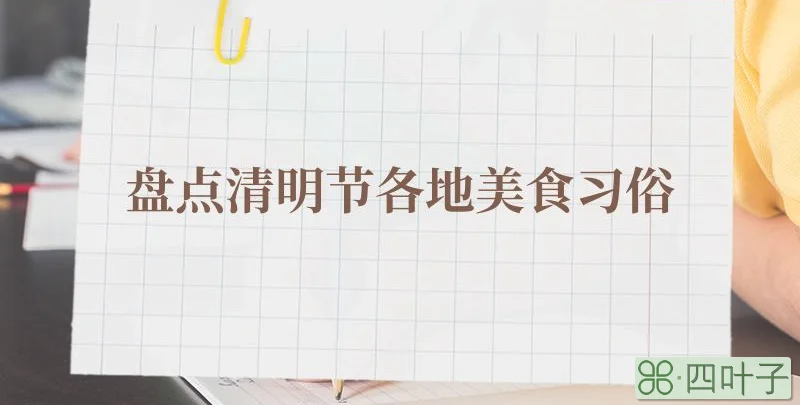 盘点清明节各地美食习俗
四叶子